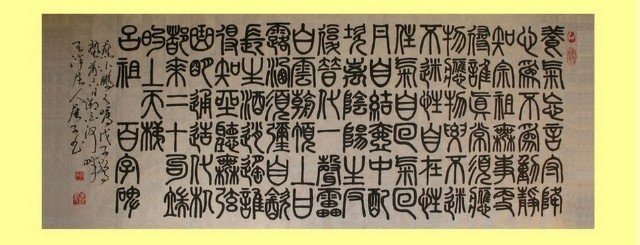 養氣忘言守降
心為不為動靜
知宗祖無事更
尋誰真常須應
物應物要不迷
不迷性自住性
住氣自回氣回
丹自結壺中配
坎離陰陽生反
復普化一聲雷
白雲朝頂上甘
露洒須彌自飲
長生酒逍遙誰
得知坐聽無弦
曲明通造化機
都來二十句端
的上天梯
呂祖 百字碑